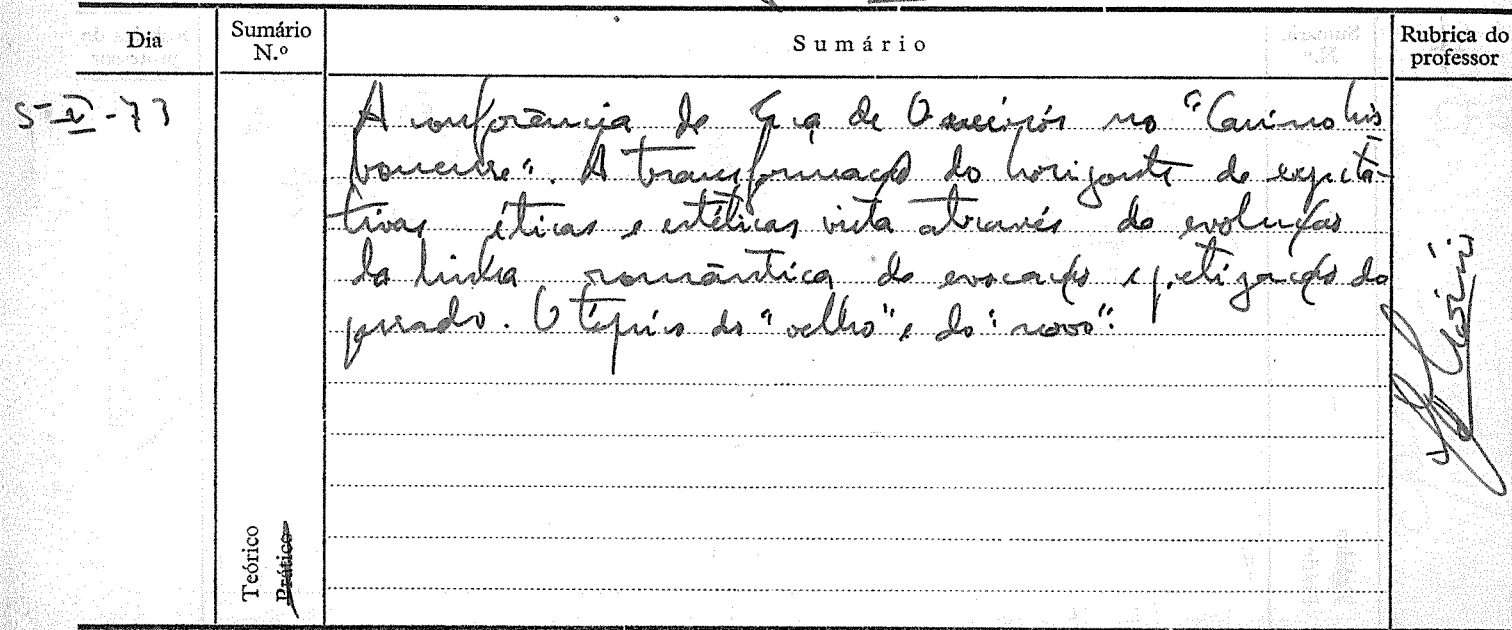 Dia
Sumário N.º
Sumário
Rubrica do professor
5-II-73
A conferência de Eça de Queirós no "Casino lis
bonense". A transformação do horizonte de expecta-
tivas éticas e estéticas vista através da evolução
da linha romântica de evocação e poetização do
passado. O tópico do "velho" e do "novo".
Teórico
Prático